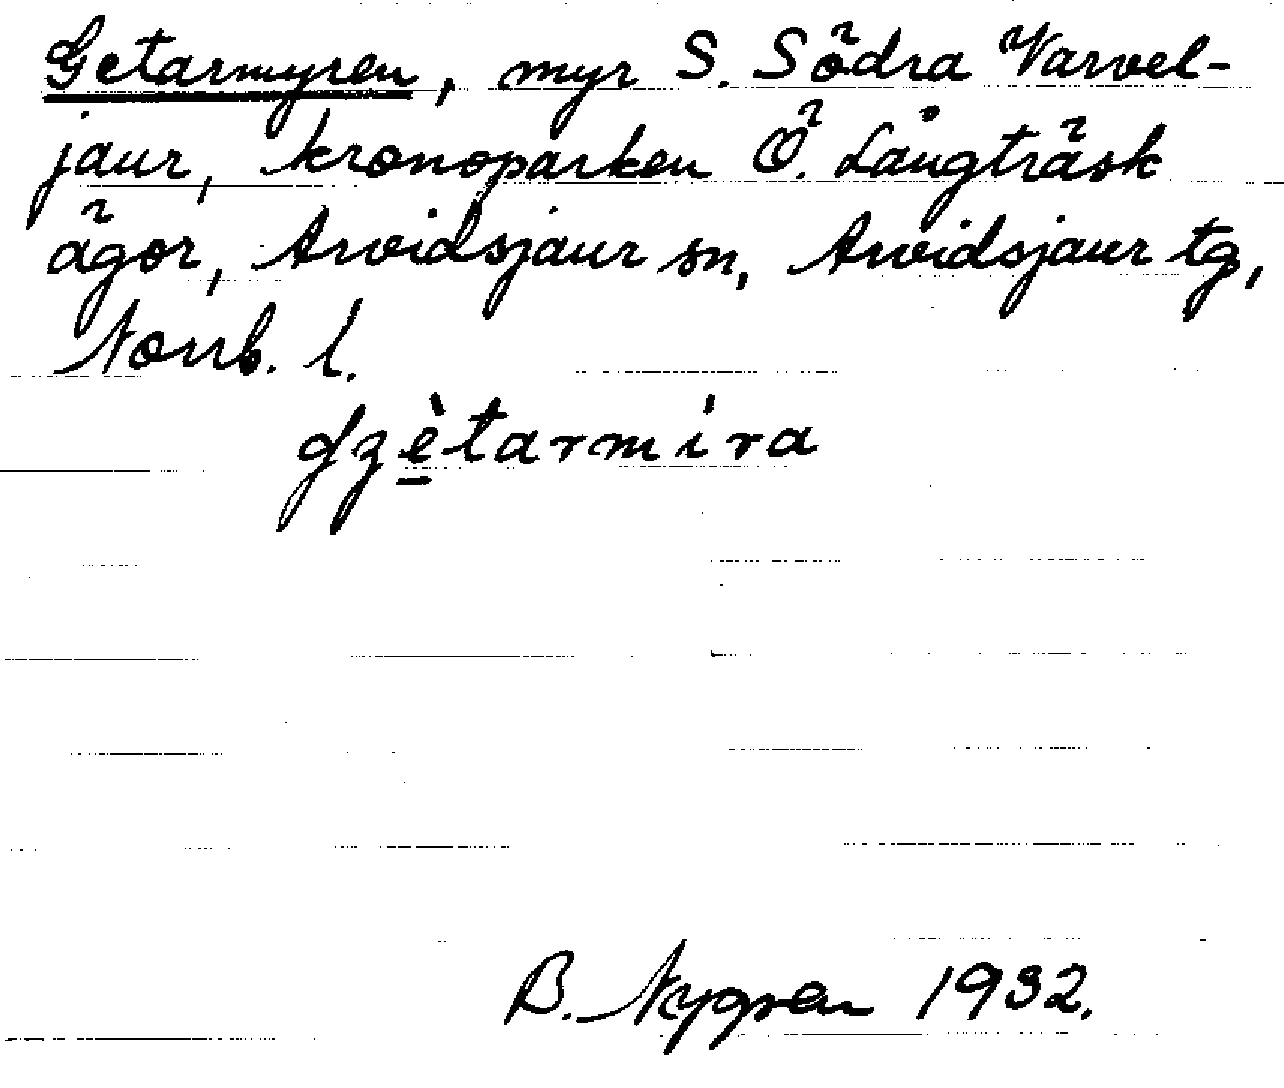 Getarmyren, myr S. Södra Varvel-
jaur, kronoparken Ö. Långträsk
ägor, Arvidsjaur sn, Arvidsjaur tg,
Norrb. l.
B. Nygren 1932.